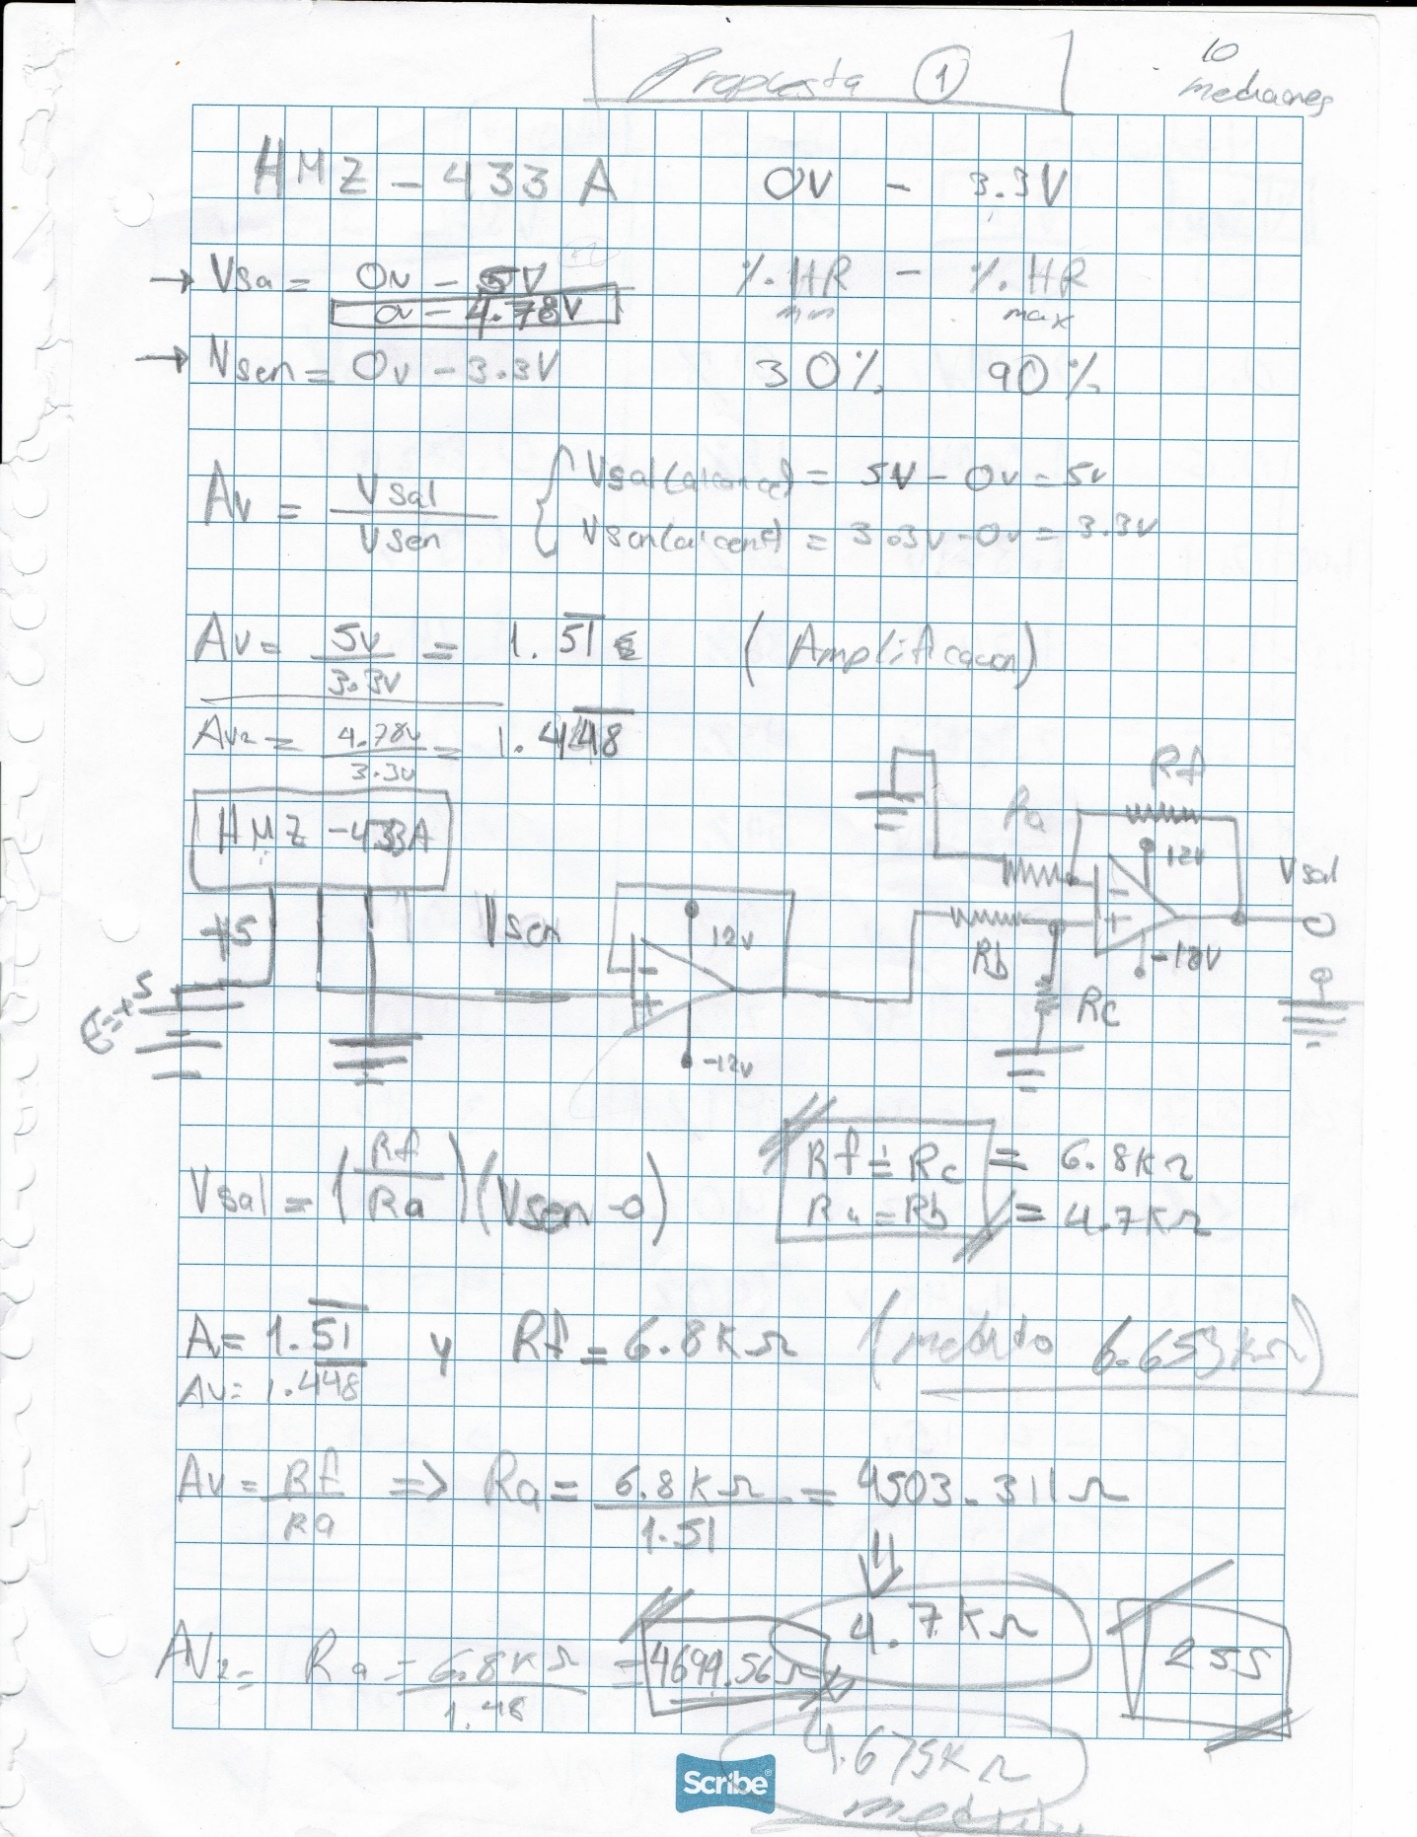 Propuesta 1
10
mediciones
HMZ - 433 A 0V - 3.3V
→ Vsa = 0v - 5V %HR - %HR
0 - 4.78V min max
→ Vsen = 0v - 3.3V 30% 90%
Av = Vsal / Vsen { Vsal(alcance) = 5V - 0v = 5v
Vsen(alcance) = 3.3v - 0v = 3.3v
Av = 5v / 3.3v = 1.51 (Amplificacion)
Av2 = 4.78v / 3.3v = 1.448
Rf
HMZ - 433A Ra
12v Vsal
+5 Vsen 12v
Rb -12V
E=+5 Rc
-12v
Vsal = (Rf / Ra)(Vsen - 0) Rf = Rc = 6.8KΩ
Ra = Rb = 4.7KΩ
A = 1.51 y Rf = 6.8KΩ (medido 6.653KΩ)
Av = 1.448
Av = Rf / Ra => Ra = 6.8KΩ / 1.51 = 4503.311Ω
4.7KΩ
AV2 = Ra = 6.8KΩ / 1.48 = 4694.56Ω 255
4.675KΩ
Scribe®